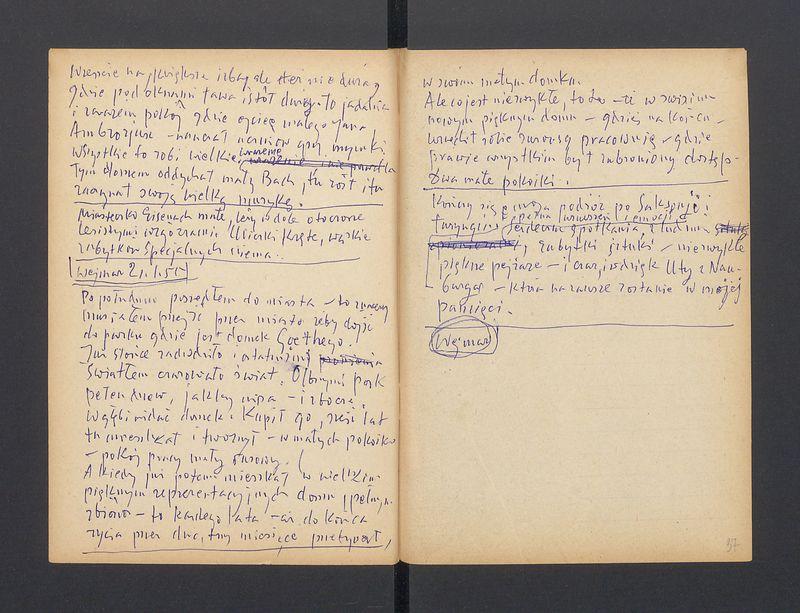 Wreszcie największa izba, ale też nie duża
gdzie pod oknami ława i stół duży - to jadalnia
i zarazem pokój gdzie ojciec małego Jana
Ambrozjusz - nauczał uczniów gry muzyki
Wszystko to robi wielkie wrażenie
Tym domem oddychał mały Bach, tu rósł i tu
zaczynał swoją wielką muzykę.
Miasteczko Eisenach małe, leży w dole otoczone
lesistymi wzgórzami. Uliczki kręte, wąskie
zabytków specjalnych niema.
Wejmar
Po południu poszedłem do miasta - to znaczy
musiałem przejść przez miasto żeby dojść
do parku gdzie jest domek Goethego.
Już słońce zachodziło i ostatnimi promienia
światłem czarowało świat. Olbrzymi park
pełen drzew, jakby wyspa - i zbocze.
W głębi widać domek. Kupił go, sześć lat
tu mieszkał i tworzył - w małych pokoikach
- pokój pracy mały surowy.
A kiedy już potem mieszkał w wielkim
pięknym reprezentacyjnym domu, pełnym
zbiorów - to każdego lata - aż do końca
życia przez dwa, trzy miesiące przebywał,
w swoim małym domku.
Ale co jest niezwykłe, to że - i w swoim
nowym pięknym domu - gdzieś na końcu -
urządził sobie surową pracownię - gdzie
prawie wszystkim był zabroniony dostęp -
Dwa małe pokoiki.
Kończy się moja podróż po Saksonji i
Turyngii, pełna wzruszeń i emocji
serdeczne spotkania z ludźmi
zabytki sztuki - niezwykle
piękne pejzaże - i czar, i wdzięk Uty z Naum-
burga - która na zawsze zostanie w mojej
pamięci.
Wejmar
37